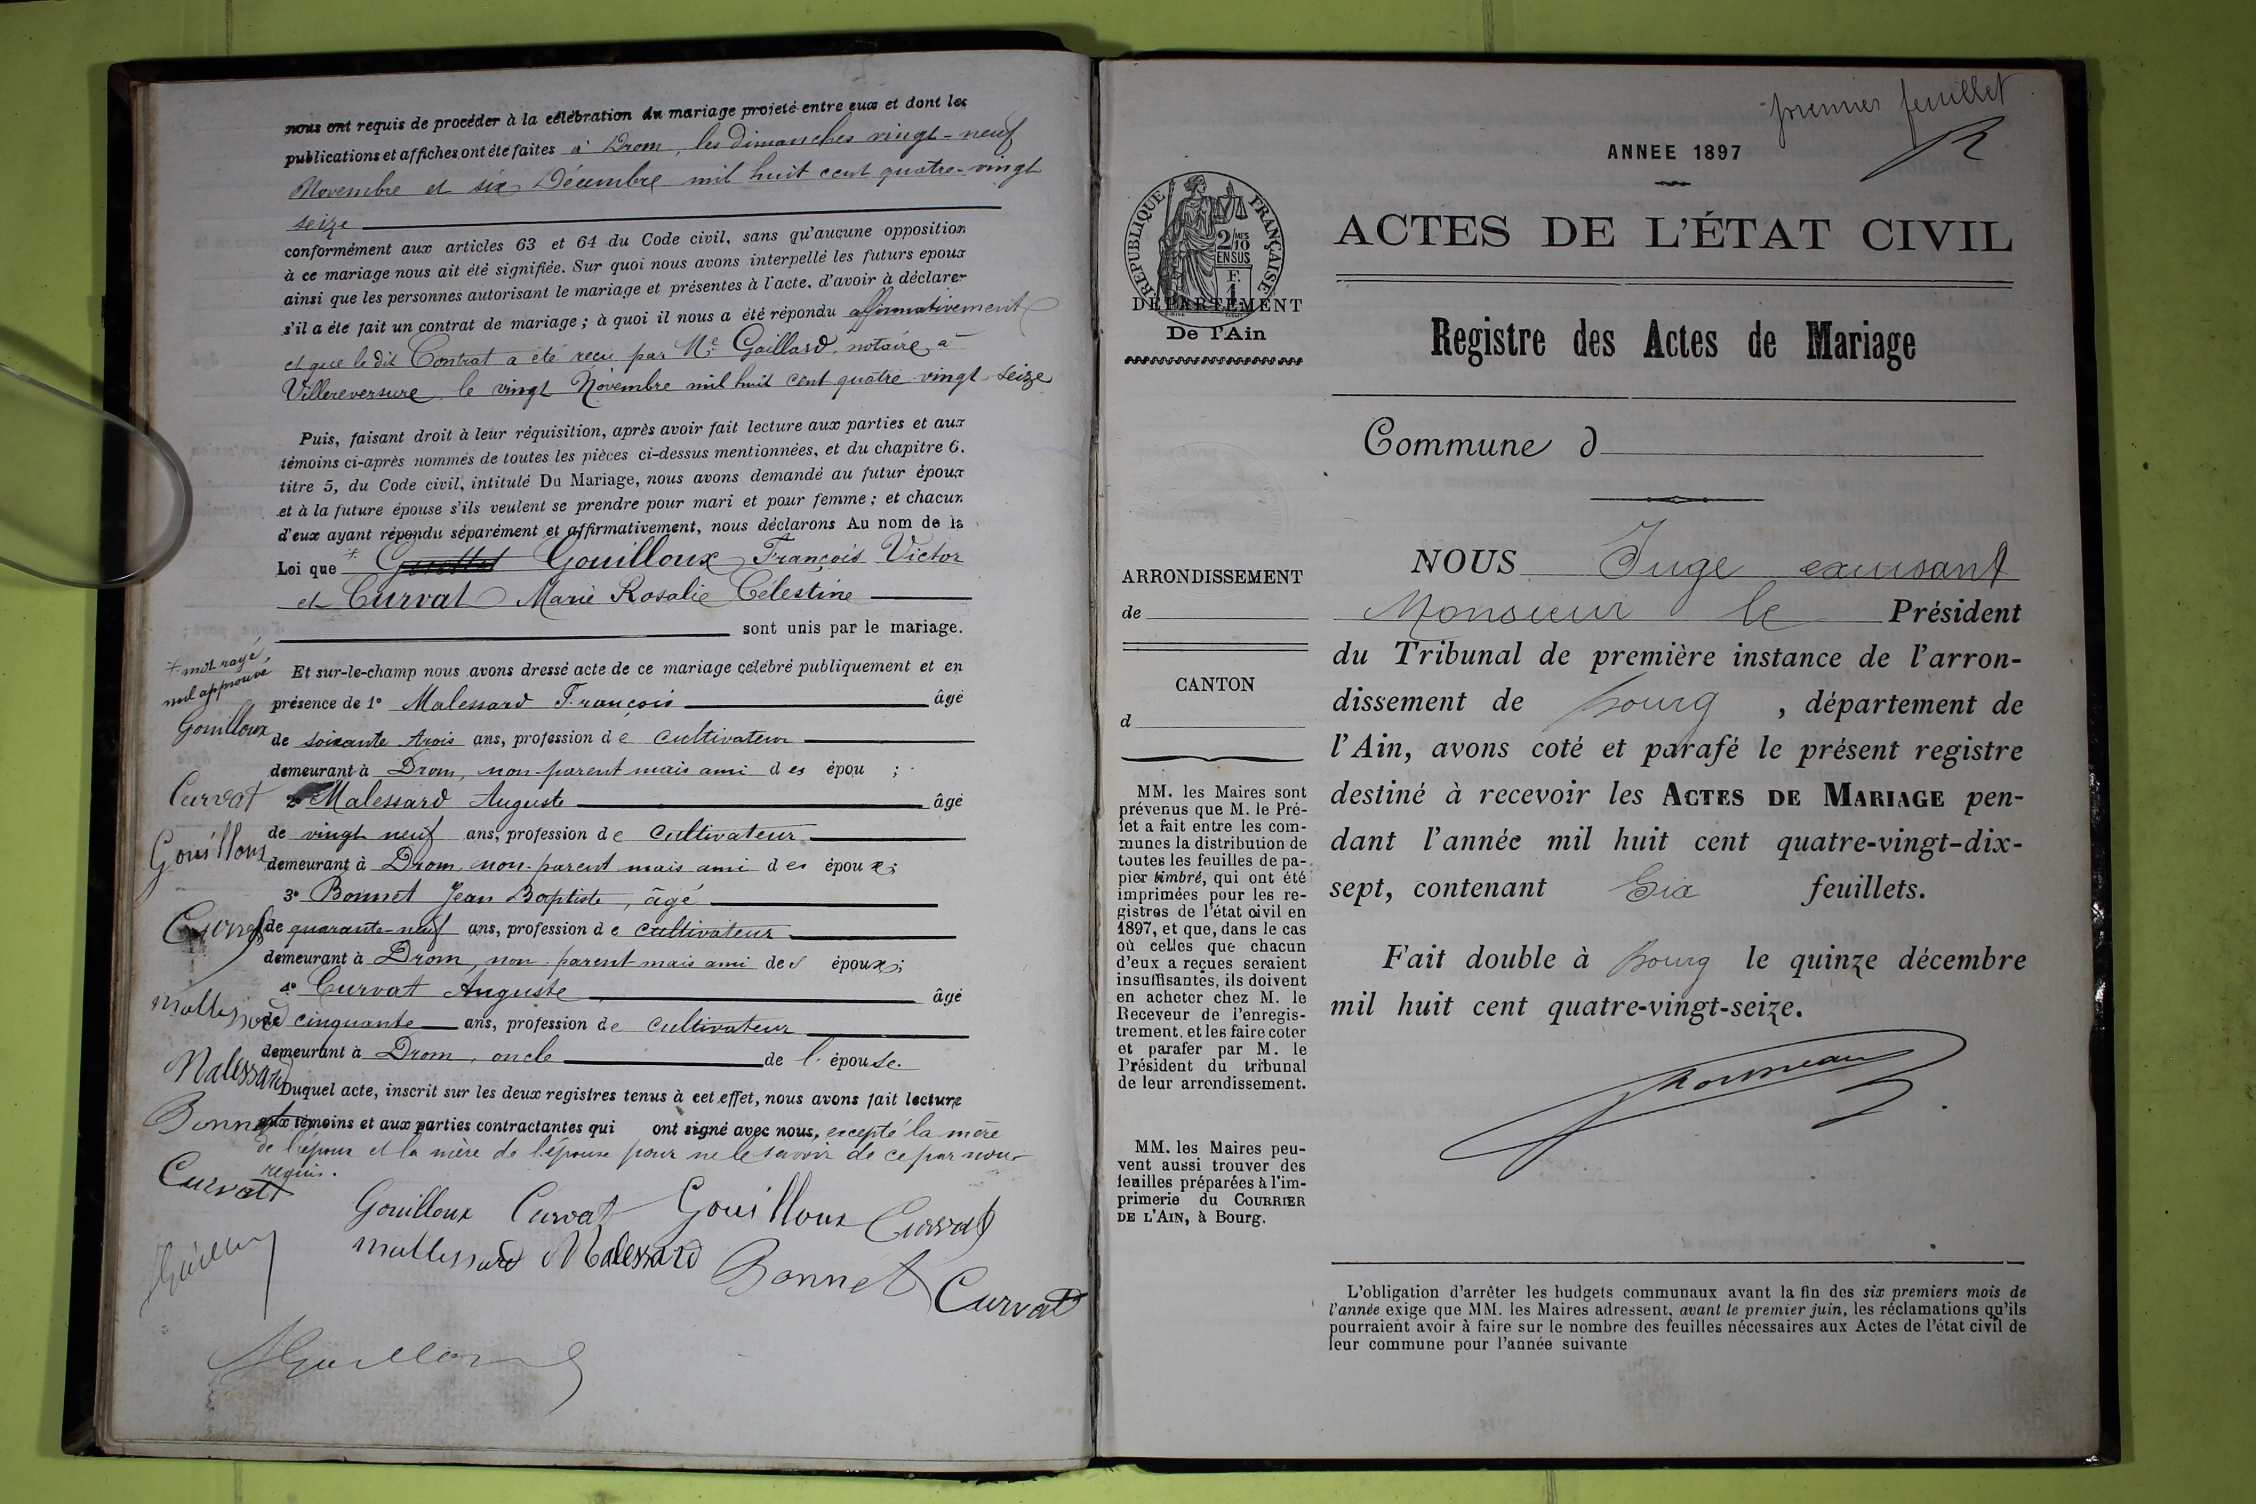 nous ont requis de procéder à la célébration du mariage projeté entre eux et dont les
publications et affiches ont été faites à Drom, les dimanches vingt-neuf
Novembre et six Décembre mil huit cent quatre-vingt
seize
conformément aux articles 63 et 64 du Code civil, sans qu'aucune opposition
à ce mariage nous ait été signifiée. Sur quoi nous avons interpellé les futurs epoux
ainsi que les personnes autorisant le mariage et présentes à l'acte, d'avoir à déclarer
s'il a été fait un contrat de mariage ; à quoi il nous a été répondu affirmativement
et que le dit Contrat a été reçu par Me Gaillard, notaire à
Villereversure le vingt Novembre mil huit cent quatre vingt seize
Puis, faisant droit à leur réquisition, après avoir fait lecture aux parties et aux
témoins ci-après nommés de toutes les pièces ci-dessus mentionnées, et du chapitre 6.
titre 5, du Code civil, intitulé Du Mariage, nous avons demandé au futur époux
et à la future épouse s'ils veulent se prendre pour mari et pour femme ; et chacun
d'eux ayant répondu séparément et affirmativement, nous déclarons Au nom de la
Loi que + Gouilloux François Victor
et Curvat Marie Rosalie Célestine
sont unis par le mariage.
+ mot rayé,
nul approuvé
Et sur-le-champ nous avons dressé acte de ce mariage célébré publiquement et en
présence de 1° Malessard François âgé
Gouilloux
de soixante trois ans, profession de cultivateur
demeurant à Drom, non parent mais ami des épou ;
Curvat
2° Malessard Auguste âgé
de vingt neuf ans, profession de cultivateur
Gouilloux
demeurant à Drom, non parent mais ami des époux;
3° Bonnet Jean Baptiste, âgé
Curvat
de quarante-neuf ans, profession de cultivateur
demeurant à Drom, non parent mais ami des époux;
4° Curvat Auguste âgé
mallessard
de cinquante ans, profession de cultivateur
demeurant à Drom, oncle de l'épouse.
Malessard
Duquel acte, inscrit sur les deux registres tenus à cet effet, nous avons fait lecture
Bonnet
aux témoins et aux parties contractantes qui ont signé avec nous, excepté la mère
de l'époux et la mère de l'épouse pour ne le savoir de ce par nous
requis.
Curvat
Gouilloux Curvat Gouilloux Curvat
mallessard Malessard Bonnet Curvat
premier feuillet
ANNEE 1897
RÉPUBLIQUE FRANÇAISE
2/10 MES
EN SUS
F.
1
ACTES DE L'ÉTAT CIVIL
DÉPARTEMENT
De l'Ain
Registre des Actes de Mariage
Commune d
ARRONDISSEMENT
de
CANTON
d
MM. les Maires sont
prévenus que M. le Pré-
fet a fait entre les com-
munes la distribution de
toutes les feuilles de pa-
pier timbré, qui ont été
imprimées pour les re-
gistres de l'état civil en
1897, et que, dans le cas
où celles que chacun
d'eux a reçues seraient
insuffisantes, ils doivent
en acheter chez M. le
Receveur de l'enregis-
trement, et les faire coter
et parafer par M. le
Président du tribunal
de leur arrondissement.
MM. les Maires peu-
vent aussi trouver des
feuilles préparées à l'im-
primerie du COURRIER
DE L'AIN, à Bourg.
NOUS Juge
Monsieur le Président
du Tribunal de première instance de l'arron-
dissement de Bourg , département de
l'Ain, avons coté et parafé le présent registre
destiné à recevoir les ACTES DE MARIAGE pen-
dant l'année mil huit cent quatre-vingt-dix-
sept, contenant Six feuillets.
Fait double à Bourg le quinze décembre
mil huit cent quatre-vingt-seize.
L'obligation d'arrêter les budgets communaux avant la fin des six premiers mois de
l'année exige que MM. les Maires adressent, avant le premier juin, les réclamations qu'ils
pourraient avoir à faire sur le nombre des feuilles nécessaires aux Actes de l'état civil de
leur commune pour l'année suivante